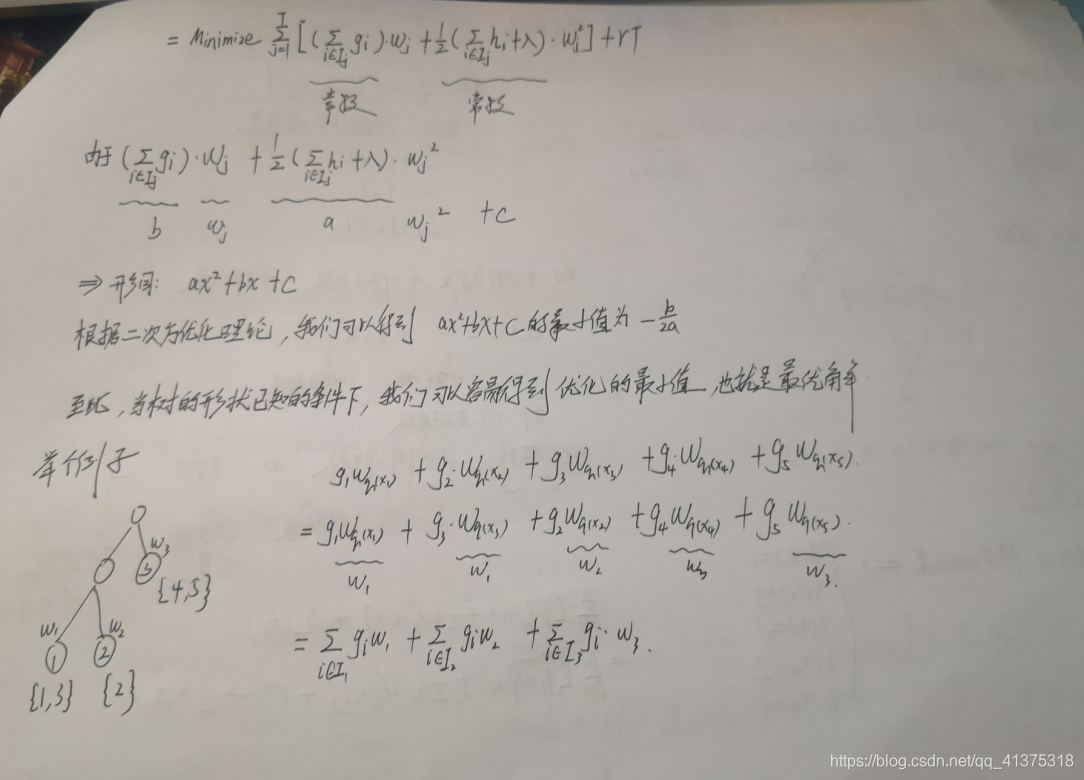 = Minimize Σ_{j=1}^{T} [(Σ_{i∈I_j} g_i)·w_j + 1/2(Σ_{i∈I_j} h_i+λ)·w_j²] + rT
常数 常数
由于 (Σ_{i∈I_j} g_i)·w_j + 1/2(Σ_{i∈I_j} h_i+λ)·w_j²
b w_j a w_j² +C
⇒ 形同: ax²+bx+C
根据二次方优化理论,我们可以得到 ax²+bx+C的最小值为 -b/2a
至此,当树的形状已知的条件下,我们可以容易得到优化的最小值,也就是最优解
举个例子
g₁w_{q(x₁)} + g₂·w_{q(x₂)} + g₃w_{q(x₃)} + g₄·w_{q(x₄)} + g₅w_{q(x₅)}.
= g₁w_{q(x₁)} + g₃·w_{q(x₃)} + g₂w_{q(x₂)} + g₄w_{q(x₄)} + g₅w_{q(x₅)}.
w₁ w₁ w₂ w₃ w₃.
= Σ_{i∈I₁} g_iw₁ + Σ_{i∈I₂} g_iw₂ + Σ_{i∈I₃} g_i·w₃.
w₃
③
{4,5}
w₁ w₂
① ②
{1,3} {2}
https://blog.csdn.net/qq_41375318